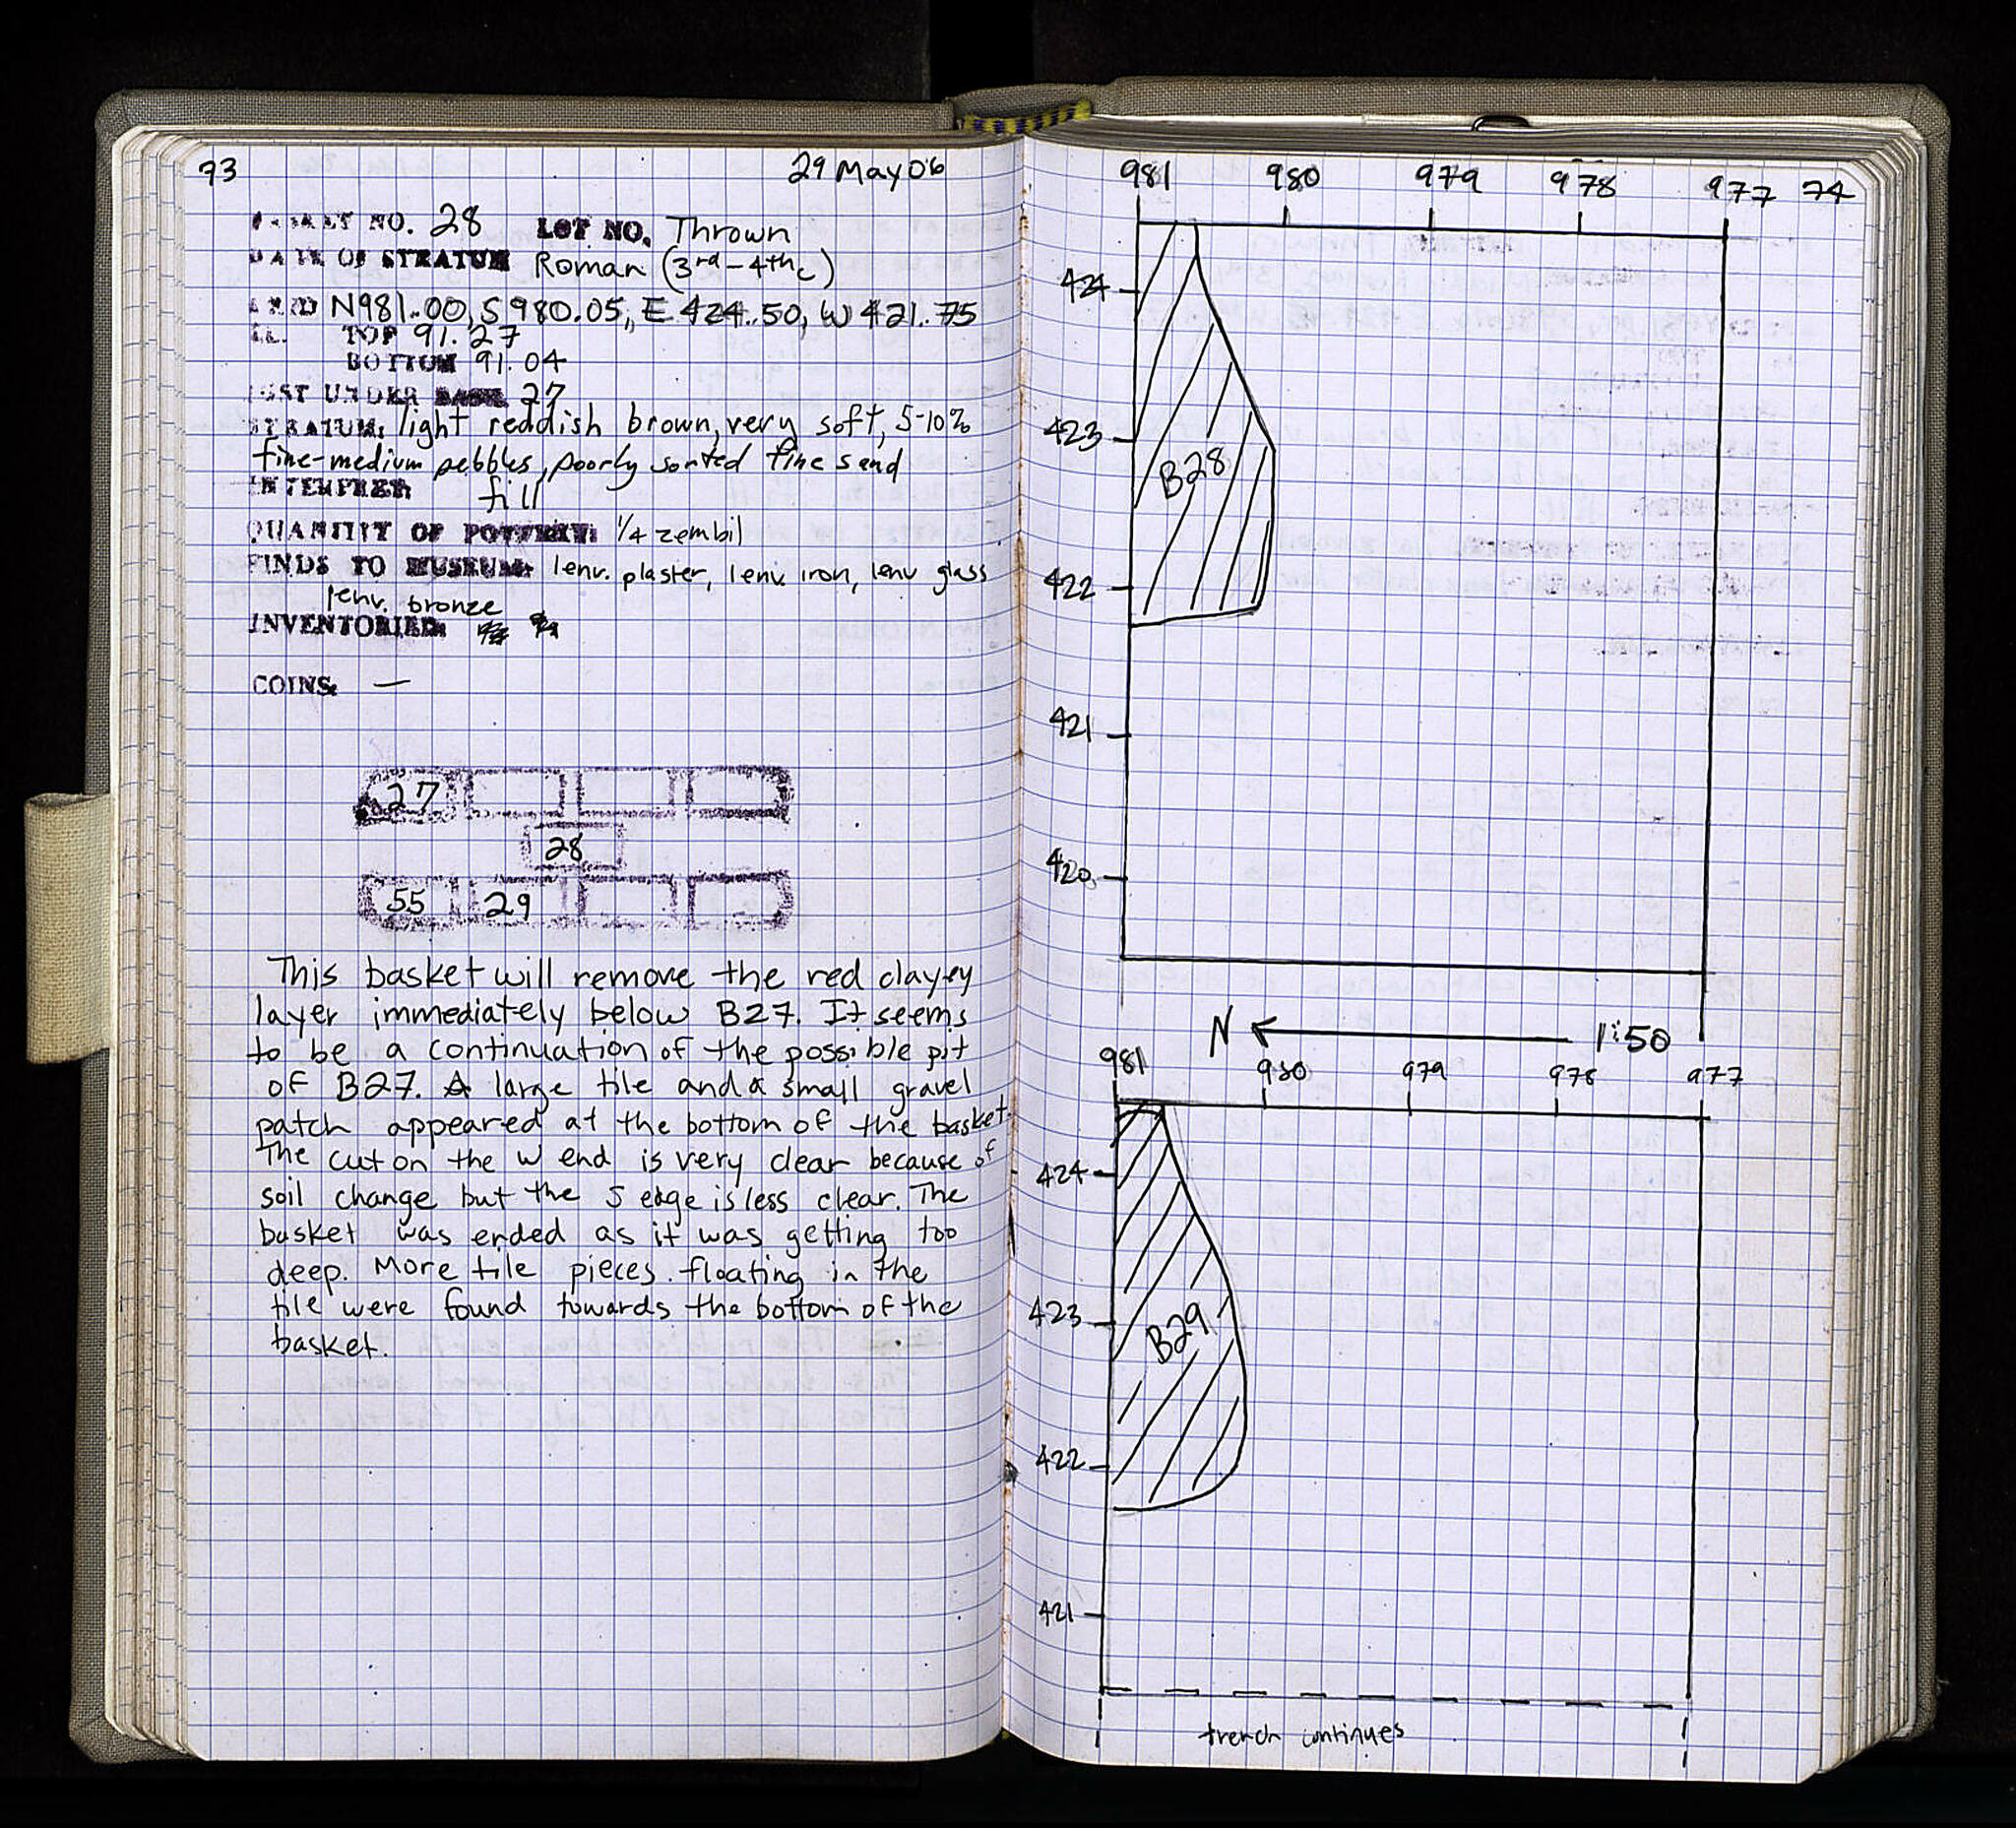 73 29 May 06
BASKET NO. 28 LOT NO. Thrown
DATE OF STRATUM Roman (3rd-4th c)
GRID N981.00, S980.05, E424.50, W421.75
EL. TOP 91.27
BOTTOM 91.04
JUST UNDER BASK. 27
STRATUM: light reddish brown, very soft, 5-10%
fine-medium pebbles, poorly sorted fine sand
INTERPRET: fill
QUANTITY OF POTTERY: 1/4 zembil
FINDS TO MUSEUM: 1env. plaster, 1env. iron, 1env glass
1env. bronze
INVENTORIED:
COINS: —
27
28
55 29
This basket will remove the red clayey
layer immediately below B27. It seems
to be a continuation of the possible pit
of B27. A large tile and a small gravel
patch appeared at the bottom of the basket.
The cut on the W end is very clear because of
soil change but the S edge is less clear. The
basket was ended as it was getting too
deep. More tile pieces floating in the
tile were found towards the bottom of the
basket.
981 980 979 978 977 74
424
423
B28
422
421
420
N 1:50
981 980 979 978 977
424
423
B29
422
421
trench continues